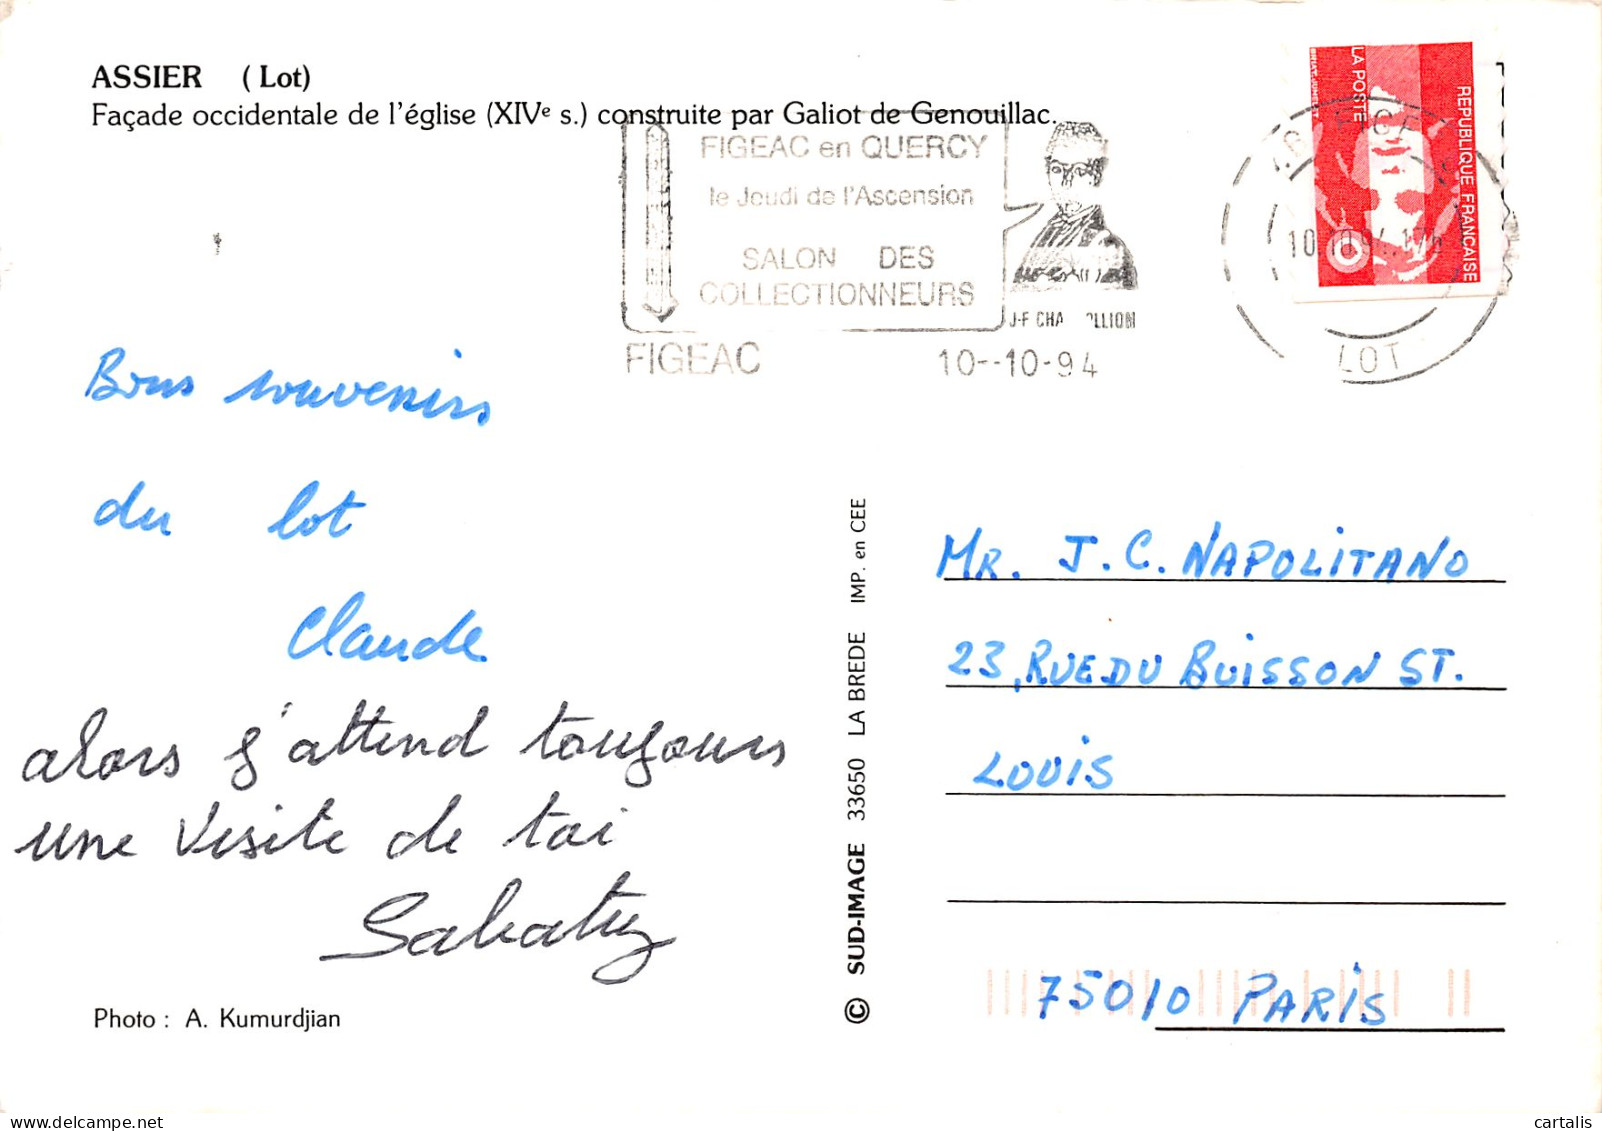 ASSIER (Lot)
Façade occidentale de l'église (XIVe s.) construite par Galiot de Genouillac.
FIGEAC en QUERCY
le Jeudi de l'Ascension
SALON DES
COLLECTIONNEURS
J-F CHA OLLION
FIGEAC
10--10-94
REPUBLIQUE FRANCAISE
LA POSTE
LOT
Bons souvenirs
du lot
Claude
alors j'attend toujours
une visite de toi
Photo : A. Kumurdjian
© SUD-IMAGE 33650 LA BREDE IMP. en CEE
MR. J. C. NAPOLITANO
23, RUE DU BUISSON ST.
LOUIS
75010 PARIS
delcampe.net
cartalis